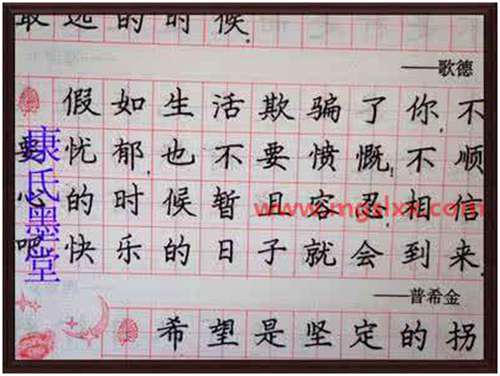 远的时候.
——歌德
假如生活欺骗了你,不
要忧郁,也不要愤慨!不顺
心的时候暂且容忍.相信
吧,快乐的日子就会到来.
——普希金
希望是坚定的拐
康氏墨堂